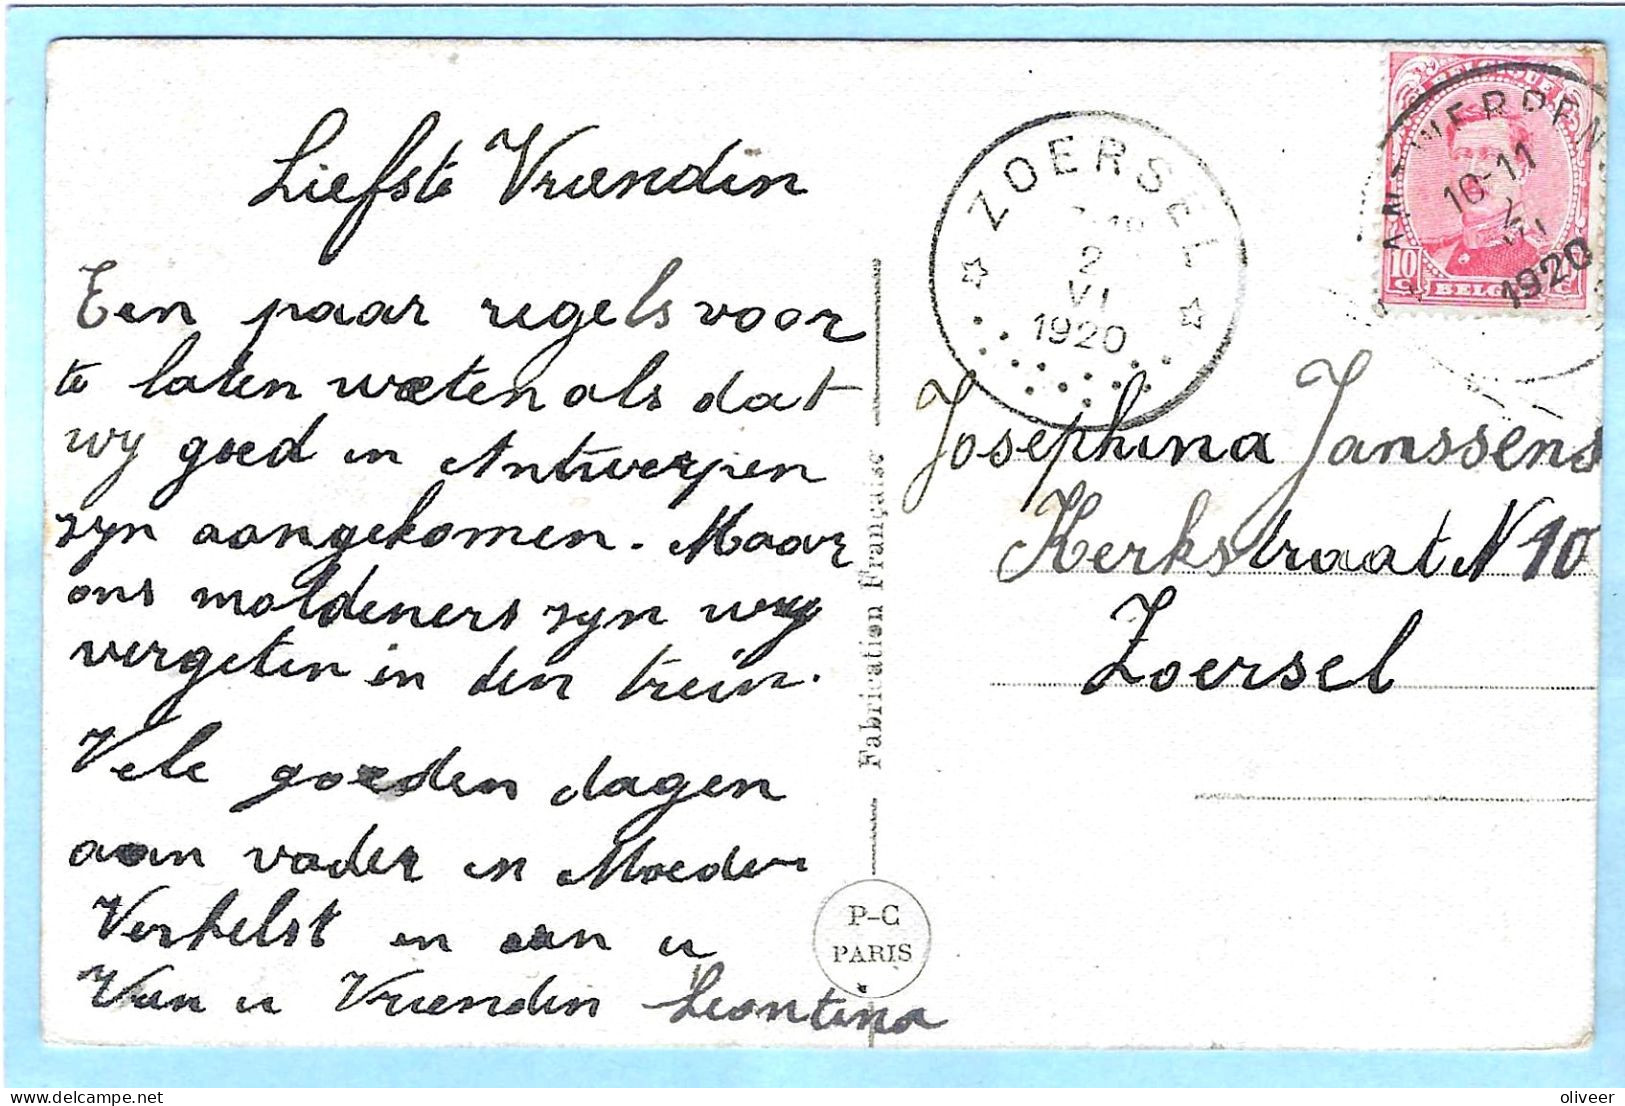 Liefste Vriendin
Een paar regels voor
te laten weten als dat
wy goed in Antwerpen
zyn aangekomen. Maar
ons moldeners zyn wy
vergeten in den trein.
Vele goeden dagen
aan vader en Moeder
Verhelst en aan u
Van u Vriendin Leontina
Fabrication Française
P-C
PARIS
ZOERSEL
2
VI
1920
BELGIQUE
ANTWERPEN
10-11
VI
1920
10
BELGIË
Josephina Janssens
Kerkstraat N 10
Zoersel
oliveer